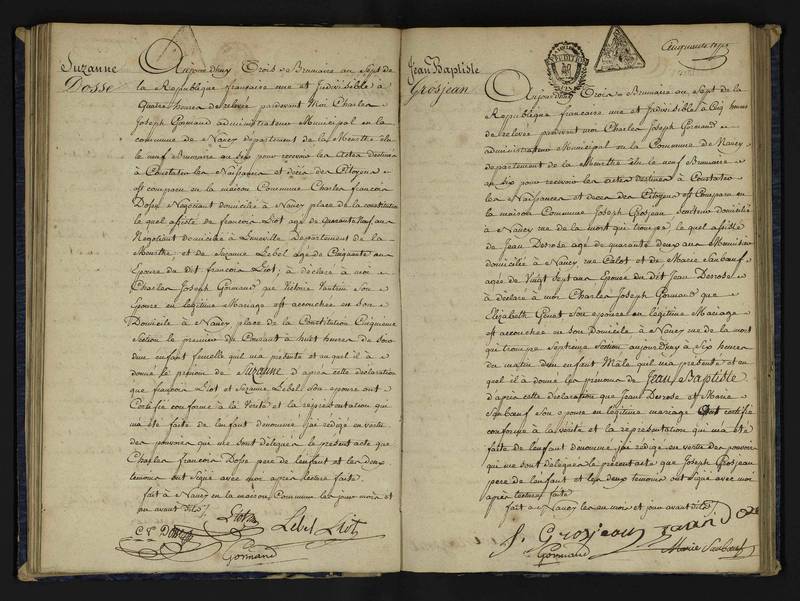 Suzanne
Dosse
Aujourd'huy Trois Brumaire an Sept de
la Republique francaise une et Indivisible à
Quatre heures de relevée pardevant Moi Charles
Joseph Gormand administrateur Municipal en la
commune de Nancy departement de la Meurthe élu
le neuf Brumaire an Six pour recevoir les actes destinés
à Constater les Naissances et décès des Citoyens
est comparu en la maison Commune Charles francois
Dosse Negotiant domicilié à Nancy place de la constitution
le quel assisté de francois Liot age de Quarante Neuf ans
Negotiant domicilié à Luneville Departement de la
Meurthe et de Suzanne Lebel agée de Cinquante ans
Epouse du dit francois Liot, à déclaré à moi
Charles Joseph Gormand que Victoire Vautrin Son
Epouse en legitime Mariage est accouchée en Son
Domicile à Nancy place de la Constitution Cinquieme
Section le premier du Courant à huit heures du soir
dun enfant femelle quil ma présenté et au quel il à
donné le prenom de Suzanne d'après cette declaration
que francois Liot et Suzanne Lebel Son epouse ont
Certifié conforme à la Verité et la représentation qui
ma été faite de lenfant denommé jai redigé en vertu
des pouvoirs qui me sont délégués le present acte que
Charles francois Dosse pere de lenfant et les deux
temoins ont Signé avec moi après lecture faite
fait à Nancy en la maison Commune les jour mois et
an avant dits
Liot
Lebel Liot
Gormand
Jean Baptiste
Grosjean
Aujourd'huy Trois Brumaire an Sept de la
Republique francaise une et Indivisible à Cinq heures
de relevée pardevant moi Charles Joseph Gormand
administrateur Municipal en la Commune de Nancy
departement de la Meurthe élu le neuf Brumaire
an Six pour recevoir les actes destinés à Constater
les Naissances et deces des Citoyens est Comparu en
la maison Commune Joseph Grosjean domicilié
à Nancy rue de la mort qui trompe, le quel assisté
de Jean Desrose age de quarante deux ans Menuisier
domicilié à Nancy rue Calot et de Marie Saubœuf
agée de Vingt Sept ans Epouse du Dit Jean Desrose
à déclaré à moi Charles Joseph Gormand que
Elizabeth Son epouse en legitime Mariage
est accouchée en Son domicile à Nancy rue de la mort
qui trompe Septieme Section aujourdhuy à Six heures
du matin dun enfant Mâle quil ma présenté et au
quel il à donné les prénoms de Jean Baptiste
d'après cette declaration que Jean Desrose et Marie
Saubœuf Son epouse en legitime mariage Ont certifié
conforme à la vérité et la représentation qui ma été
faite de lenfant denommé jai redigé en vertu des pouvoirs
qui me sont délégués le présent acte que Joseph Grosjean
pere de lenfant et les deux temoins ont Signé avec moi
après lecture faite
fait à Nancy les an mois et jour avant dits
J. Grosjean
Gormand
Marie Saubœuf